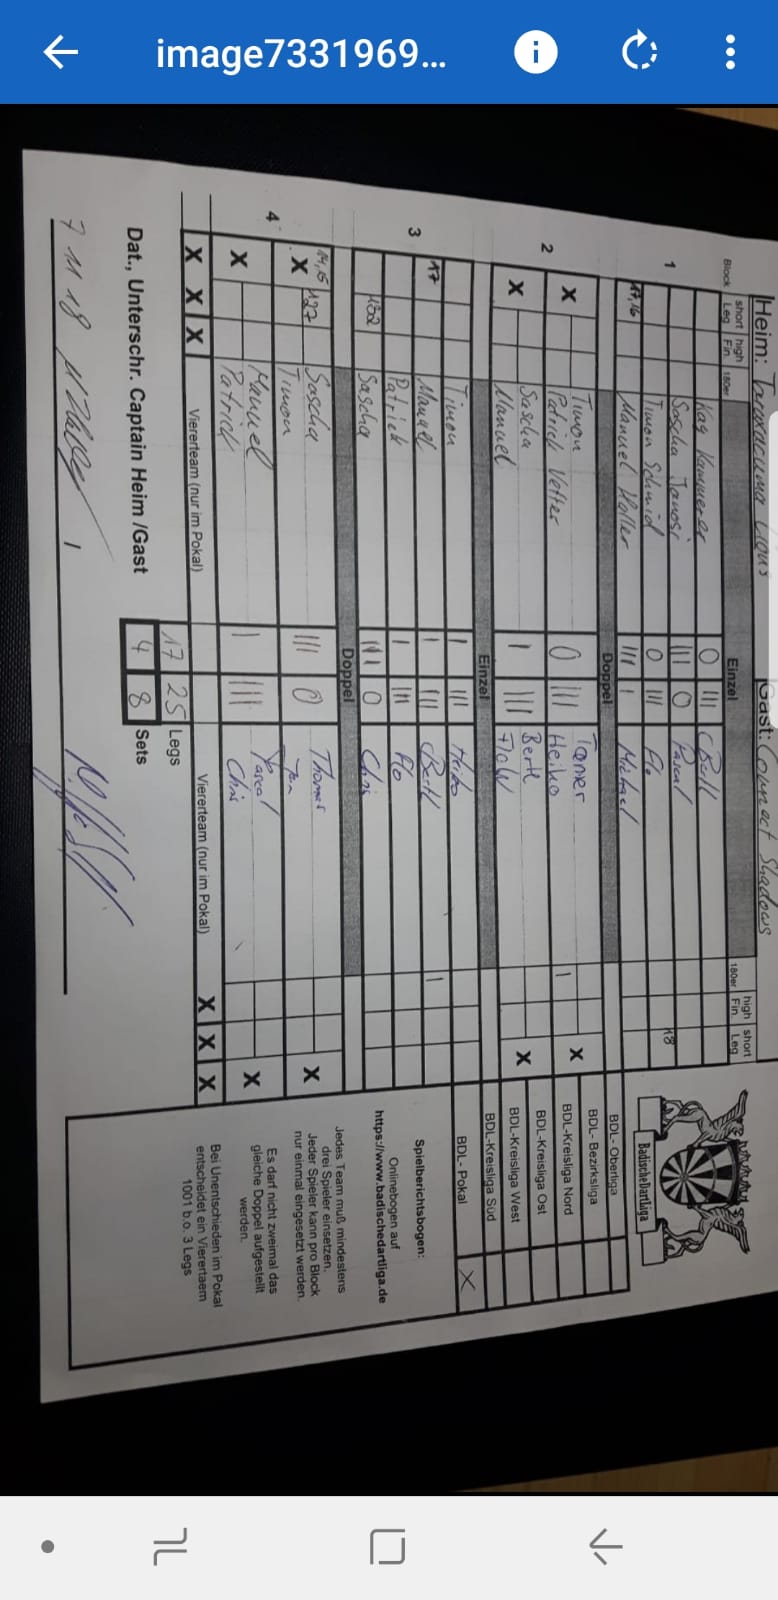 image7331969...
Heim: Taraxacuma Lions Gast: Connect Shadows
Block short Leg high Fin. 180er Einzel 180er high Fin. short Leg
1 Kay Kammerer 0 III
Sascha Janosi III 0 Pascal
Timon Schmid 0 III Flo 18
17,16 Manuel Haller III I Michael
Doppel
2 X Timon
Patrick Vetter 0 III Tamer
Heiko I X
X Sascha
Manuel I III Bert
Flow X
Einzel
3 Timon I III Heiko
17 Manuel I III Bert I
Patrick I III Flo
132 Sascha III 0 Chris
Doppel
4 14,15 X 127 Sascha
Timon III 0 Thomas
Jan X
X Manuel
Patrick I III Pascal
Chris X
X X X Viererteam (nur im Pokal) Viererteam (nur im Pokal) X X X
17 25 Legs
Dat., Unterschr. Captain Heim /Gast 4 8 Sets
7 11 18
BadischeDartLiga
BDL- Oberliga
BDL- Bezirksliga
BDL-Kreisliga Nord
BDL-Kreisliga Ost
BDL-Kreisliga West
BDL-Kreisliga Süd
BDL- Pokal X
Spielberichtsbogen:
Onlinebogen auf
https://www.badischedartliga.de
Jedes Team muß mindestens
drei Spieler einsetzen.
Jeder Spieler kann pro Block
nur einmal eingesetzt werden.
Es darf nicht zweimal das
gleiche Doppel aufgestellt
werden.
Bei Unentschieden im Pokal
entscheidet ein Vierertaem
1001 b.o. 3 Legs